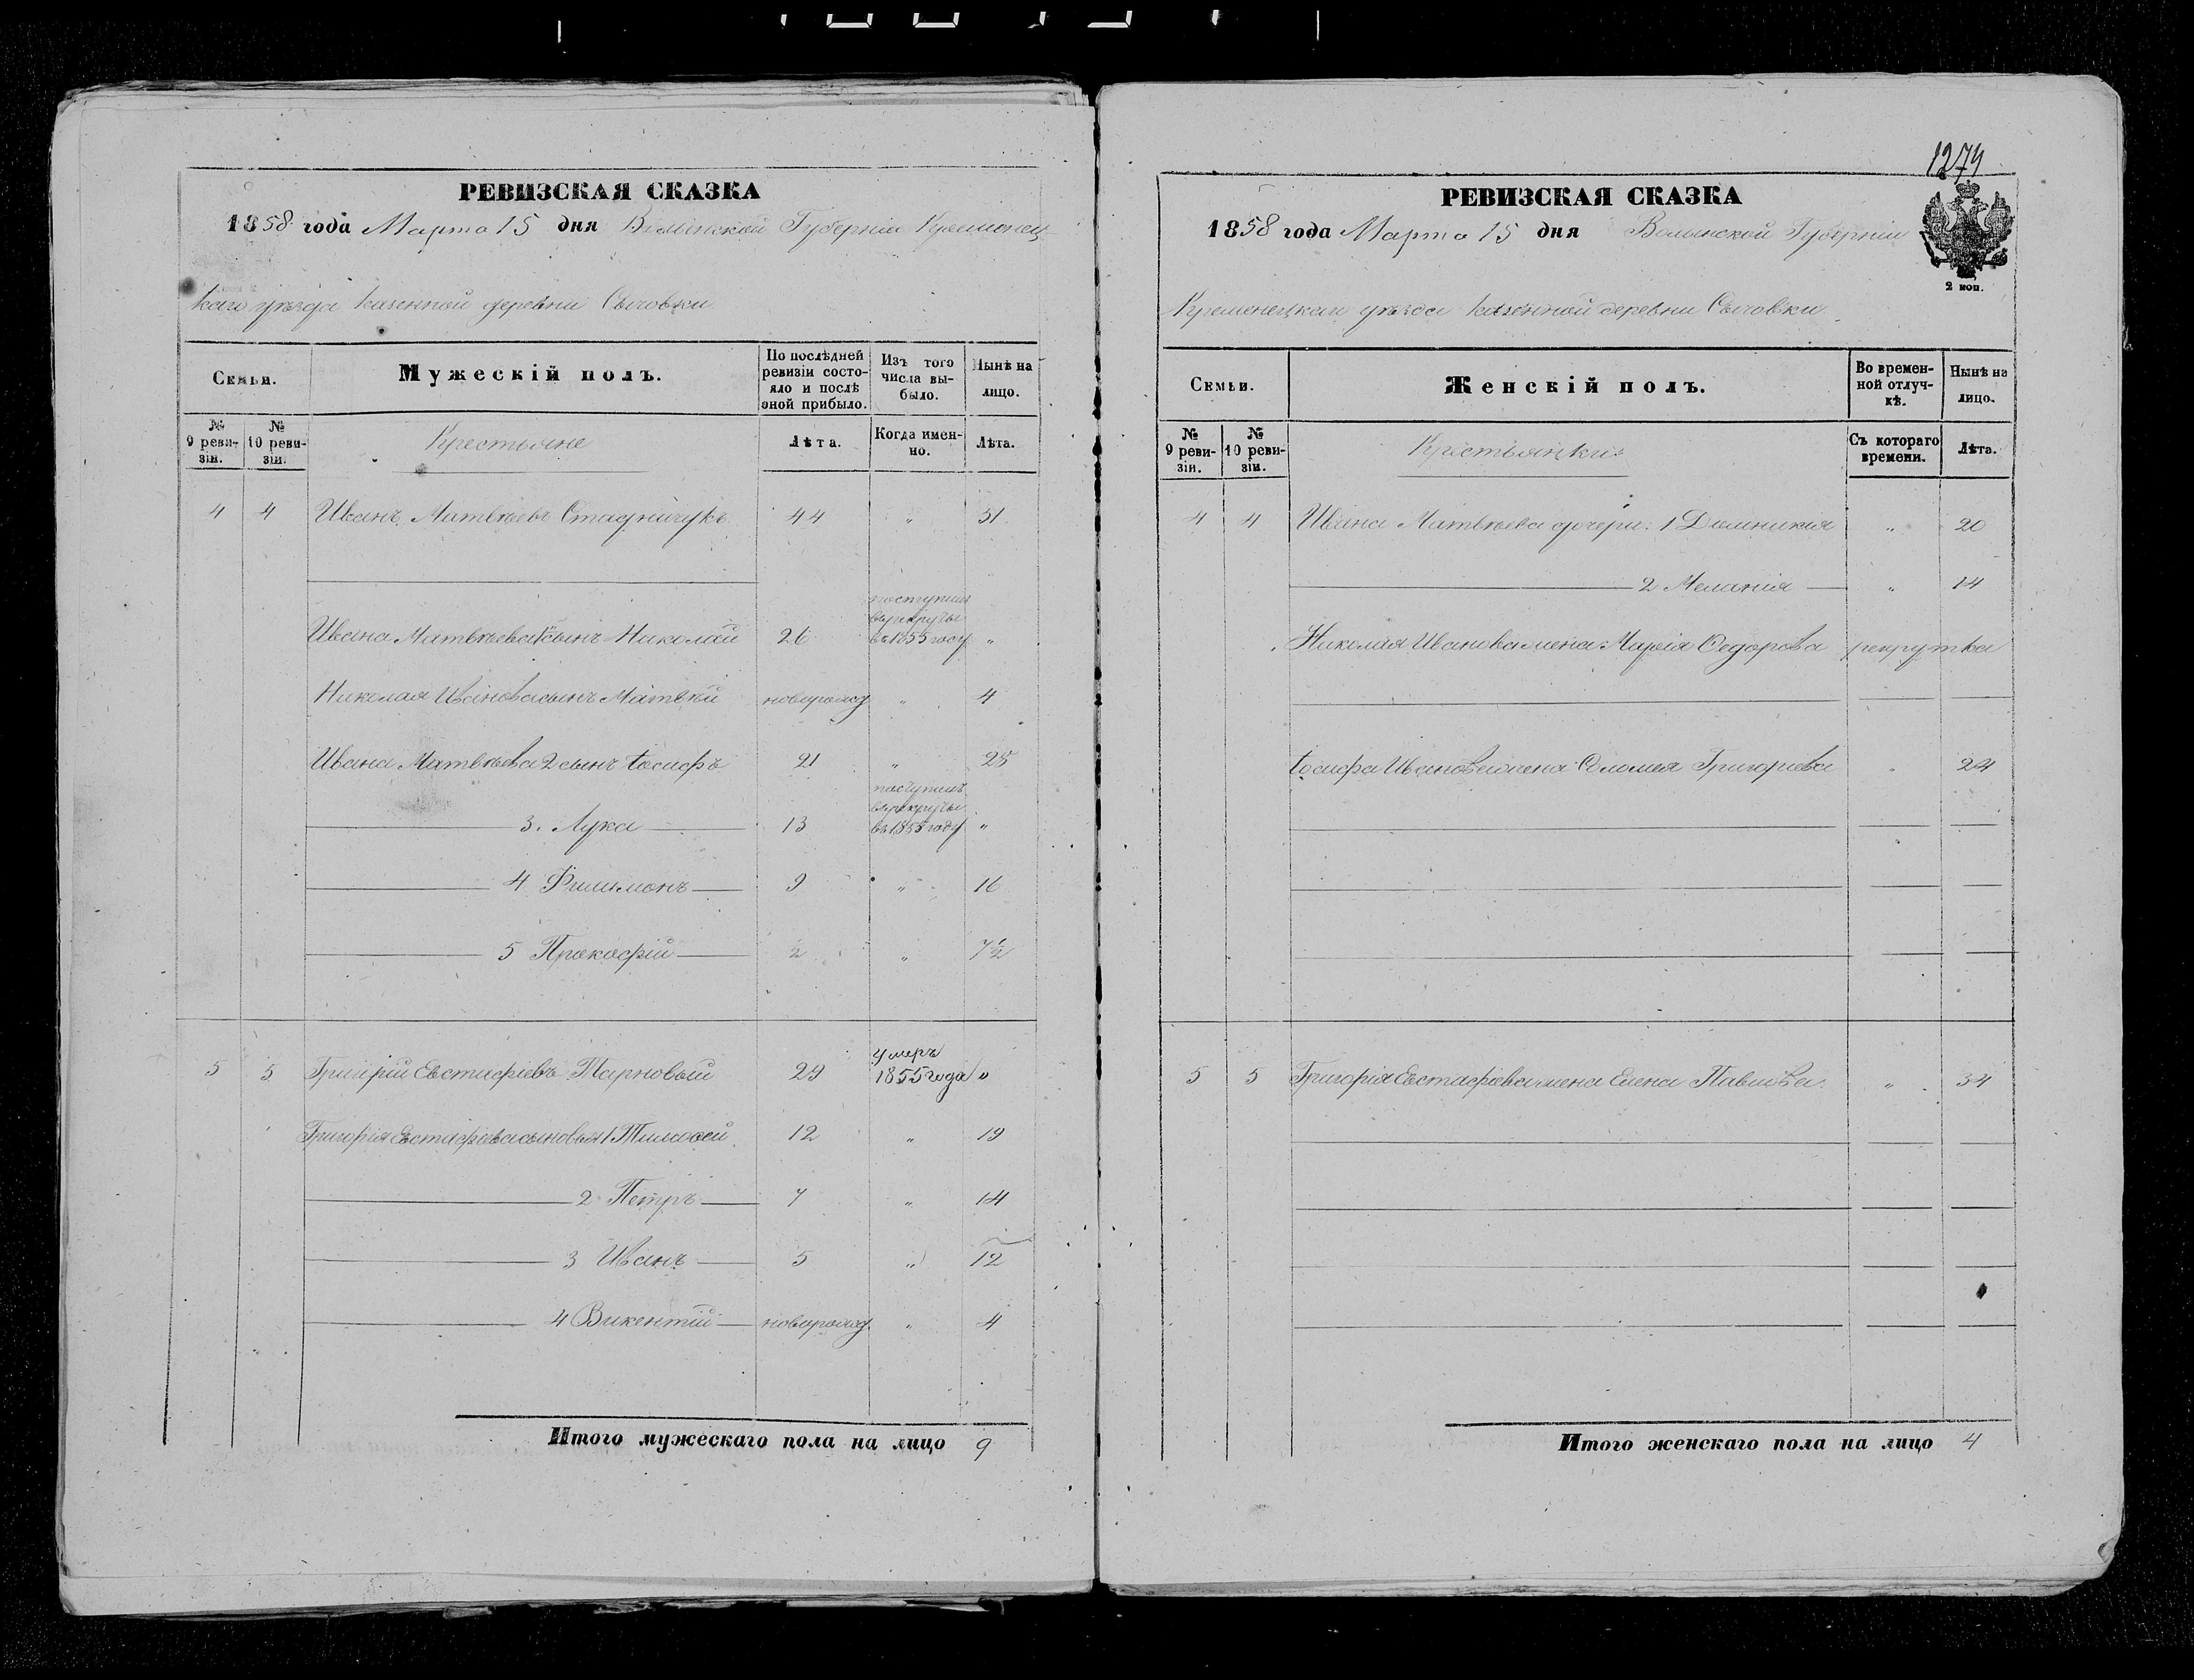 РЕВИЗСКАЯ СКАЗКА
1858 года Марта 15 дня Волынской Губерніи Кременец-
каго уѣзда казенной деревни Сычовки
Семьи.
Мужескій полъ.
По послѣдней ревизіи состояло и послѣ оной прибыло.
Изъ того числа выбыло.
Нынѣ на лицо.
№ 9 ревизіи.
№ 10 ревизіи.
Крестьяне
Лѣта.
Когда именно.
Лѣта.
4 4 Иванъ Матвѣевъ Стадничукъ 44 " 51
поступилъ
в рекруты
Ивана Матвѣева 1 сынъ Николай 26 въ 1855 году "
Николая Иванова сынъ Матвѣй новорожд " 4
Ивана Матвѣева 2 сынъ Іосифъ 21 " 28
поступилъ
в рекруты
3. Лука 13 въ 1855 году "
4 Филимонъ 9 " 16
5 Прокофій ½ " 7½
умеръ
5 5 Григорій Евстафіевъ Парновый 29 1855 года "
Григорія Евстафіева сыновья 1 Тимофей 12 " 19
2 Петръ 7 " 14
3 Иванъ 5 " 12
4 Викентій новорожд " 4
Итого мужескаго пола на лицо 9
1274
РЕВИЗСКАЯ СКАЗКА
1858 года Марта 15 дня Волынской Губерніи
2 коп.
Кременецкаго уѣзда казенной деревни Сычовки
Семьи.
Женскій полъ.
Во временной отлучкѣ.
Нынѣ на лицо.
№ 9 ревизіи.
№ 10 ревизіи.
Крестьянки
Съ котораго времени.
Лѣта.
4 4 Ивана Матвѣева дочери: 1 Домникія " 20
2 Меланія " 14
Николая Иванова жена Марія Федорова рекрутка
Іосифа Иванова жена Соломея Григорьева " 24
5 5 Григорія Евстафіева жена Елена Павлова " 34
Итого женскаго пола на лицо 4